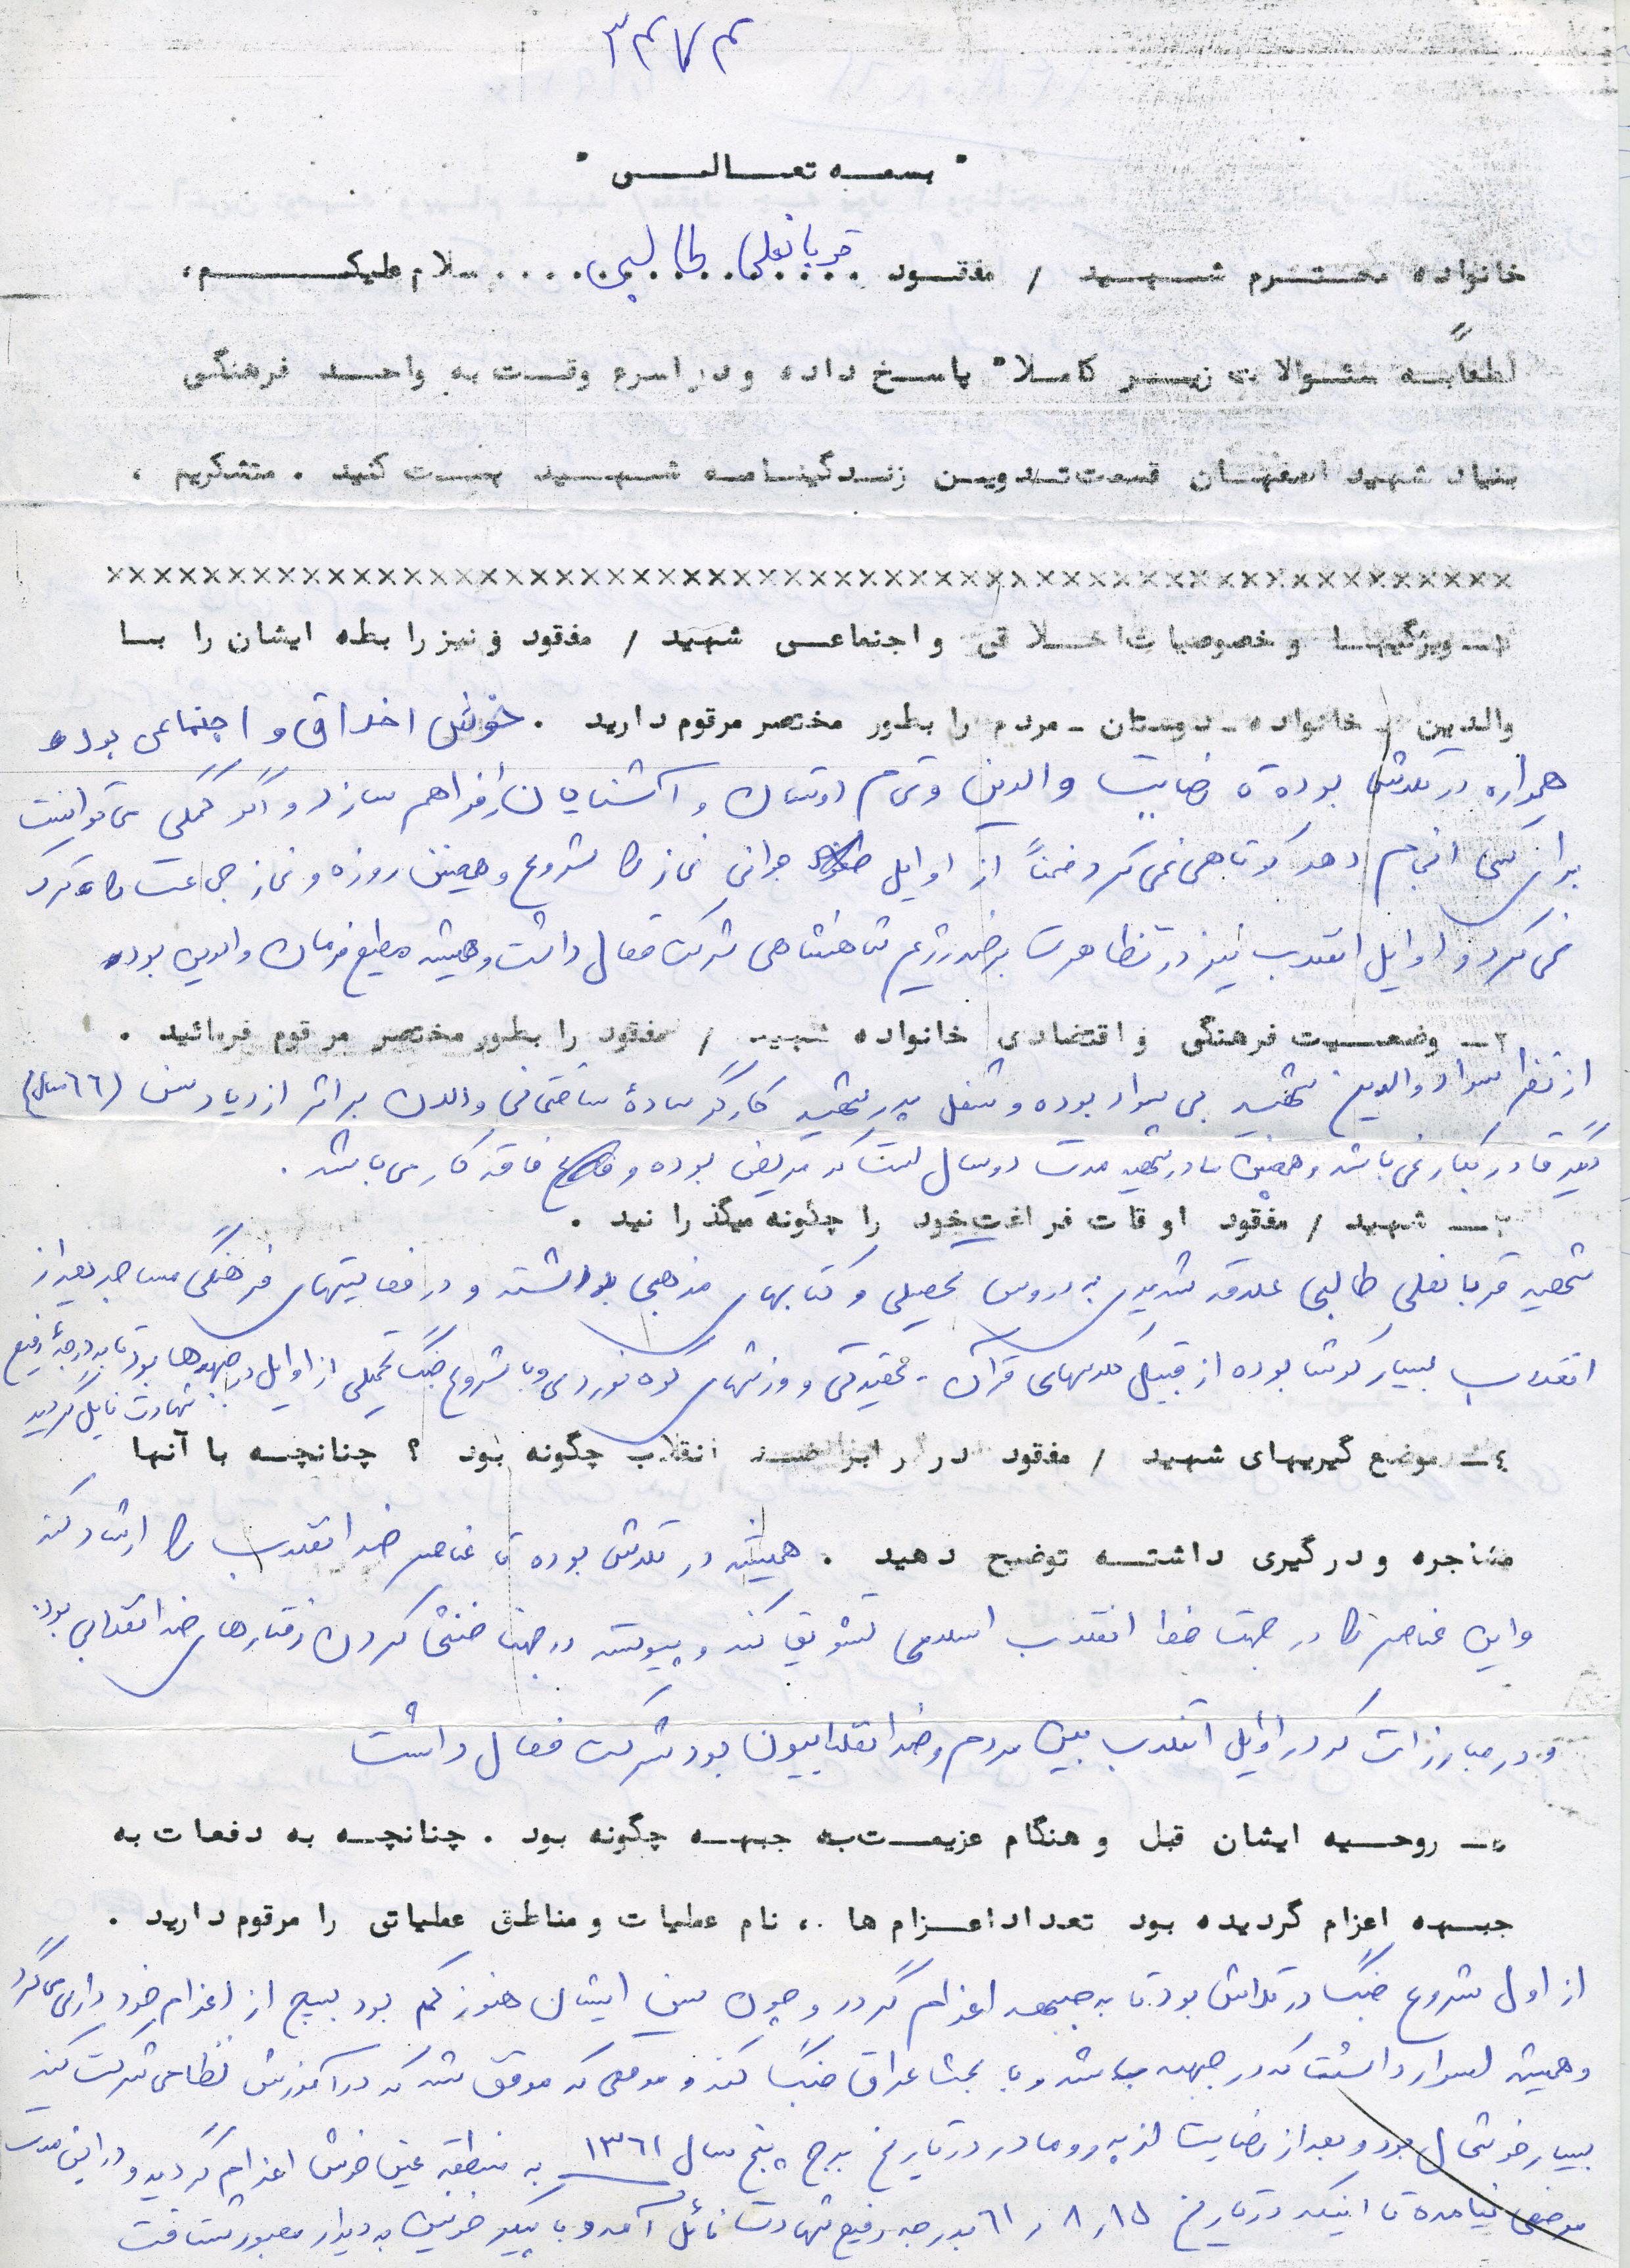 " بسمه تعالی "
خانواده محترم شهید / مفقود قربانعلی طالبی سلام علیکم،
لطفاً به سئوالات زیر کاملا" پاسخ داده و در اسرع وقت به واحد فرهنگی
بنیاد شهید اصفهان قسمت تدوین زندگینامه شهید پست کنید . متشکریم .
××××××××××××××××××××××××××××××××××××××××××××××××××××××××
۱- ویژگیها و خصوصیات اخلاقی و اجتماعی شهید / مفقود و نیز رابطه ایشان را با
والدین - خانواده - دوستان - مردم را بطور مختصر مرقوم دارید . خوش اخلاق و اجتماعی بوده
همواره در تلاش بوده تا رضایت والدین و تمام دوستان و آشنایان را فراهم سازد و اگر کمکی می توانست
برای کسی انجام دهد کوتاهی نمی کرد ضمناً از اوایل جوانی نماز را شروع و همچنین روزه و نماز جماعت را ترک
نمی کرد و اوایل انقلاب نیز در تظاهرات بر ضد رژیم شاهنشاهی شرکت فعال داشت و همیشه مطیع فرمان والدین بوده
۲- وضعیت فرهنگی و اقتضادی خانواده شهید / مفقود را بطور مختصر مرقوم فرمائید .
از نظر سواد والدین شهید بی سواد بوده و شغل پدر شهید کارگر سادۀ ساختمانی والان بر اثر ازدیاد سن (۶۶ سال)
دیگر قادر بکار نمی باشد و همچنین مادر شهید مدت دو سال است که مریض بوده و فاقد کار می باشد .
۳- شهید / مفقود اوقات فراغت خود را چگونه میگذرانید .
شهید قربانعلی طالبی علاقه شدیدی به دروس تحصیلی و کتابهای مذهبی داشته و در فعالیتهای فرهنگی مساجد بعد از
انقلاب بسیار کوشا بوده از قبیل کلاسهای قرآن - عقیدتی و ورزشهای کوه نوردی و با شروع جنگ تحمیلی از اوایل در جبهه ها بود تا به درجۀ رفیع
شهادت نایل گردید
٤- موضع گیریهای شهید / مفقود در برابر ضد انقلاب چگونه بود ؟ چنانچه با آنها
مشاجره و درگیری داشته توضیح دهید . همیشه در تلاش بوده تا عناصر ضد انقلاب را ارشاد کند
و این عناصر را در جهت حفظ انقلاب اسلامی تشویق کند و پیوسته در جهت خنثی کردن رفتارهای ضد انقلابی بود.
و در مبارزات که در اوایل انقلاب بین مردم و ضد انقلابیون بود شرکت فعال داشت
۵- روحیه ایشان قبل و هنگام عزیمت به جبهه چگونه بود . چنانچه به دفعات به
جبهه اعزام گردیده بود تعداد اعزام ها ، نام عملیات و مناطق عملیاتی را مرقوم دارید .
از اول شروع جنگ در تلاش بود تا به جبهه اعزام گردد و چون سن ایشان هنوز کم بود بسیج از اعزام خودداری می کرد
و همیشه اصرار داشت که در جبهه باشد و با بعث عراق جنگ کند و موقعی که موفق شد که در آموزش نظامی شرکت کند
بسیار خوشحال بود و بعد از رضایت از پدر و مادر در تاریخ برج پنج سال ۱۳۶۱ به منطقه عین خوش اعزام گردید و در این مدت
مرخصی نیامده تا اینکه در تاریخ ۶۱٫۸٫۱۵ بدرجه رفیع شهادت نائل آمد و با پیکر خونین به دیدار معبود شتافت